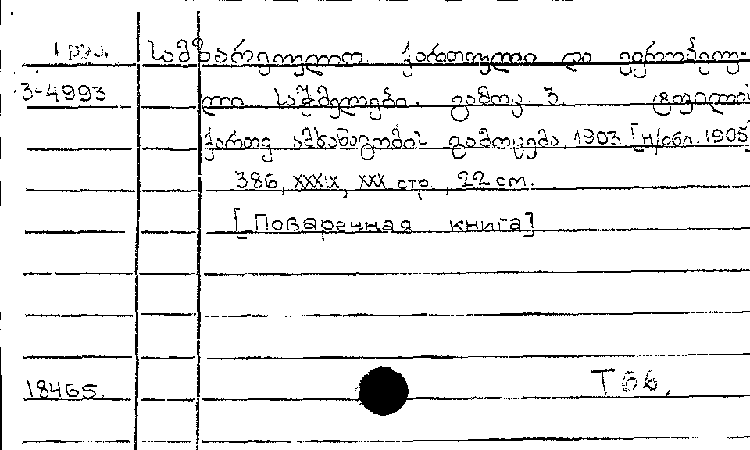 1 груз. სამზარეულო ქართული და ევროპული
3-4993 ლი საჭმელები. გამოც. 3. ტფილისი
ქართვ ამხანაგობის გამოცემა, 1903 [н/обл. 1905]
386, XXXIX, XXX стр., 22 cm.
[Поваренная книга]
18465. Т66.